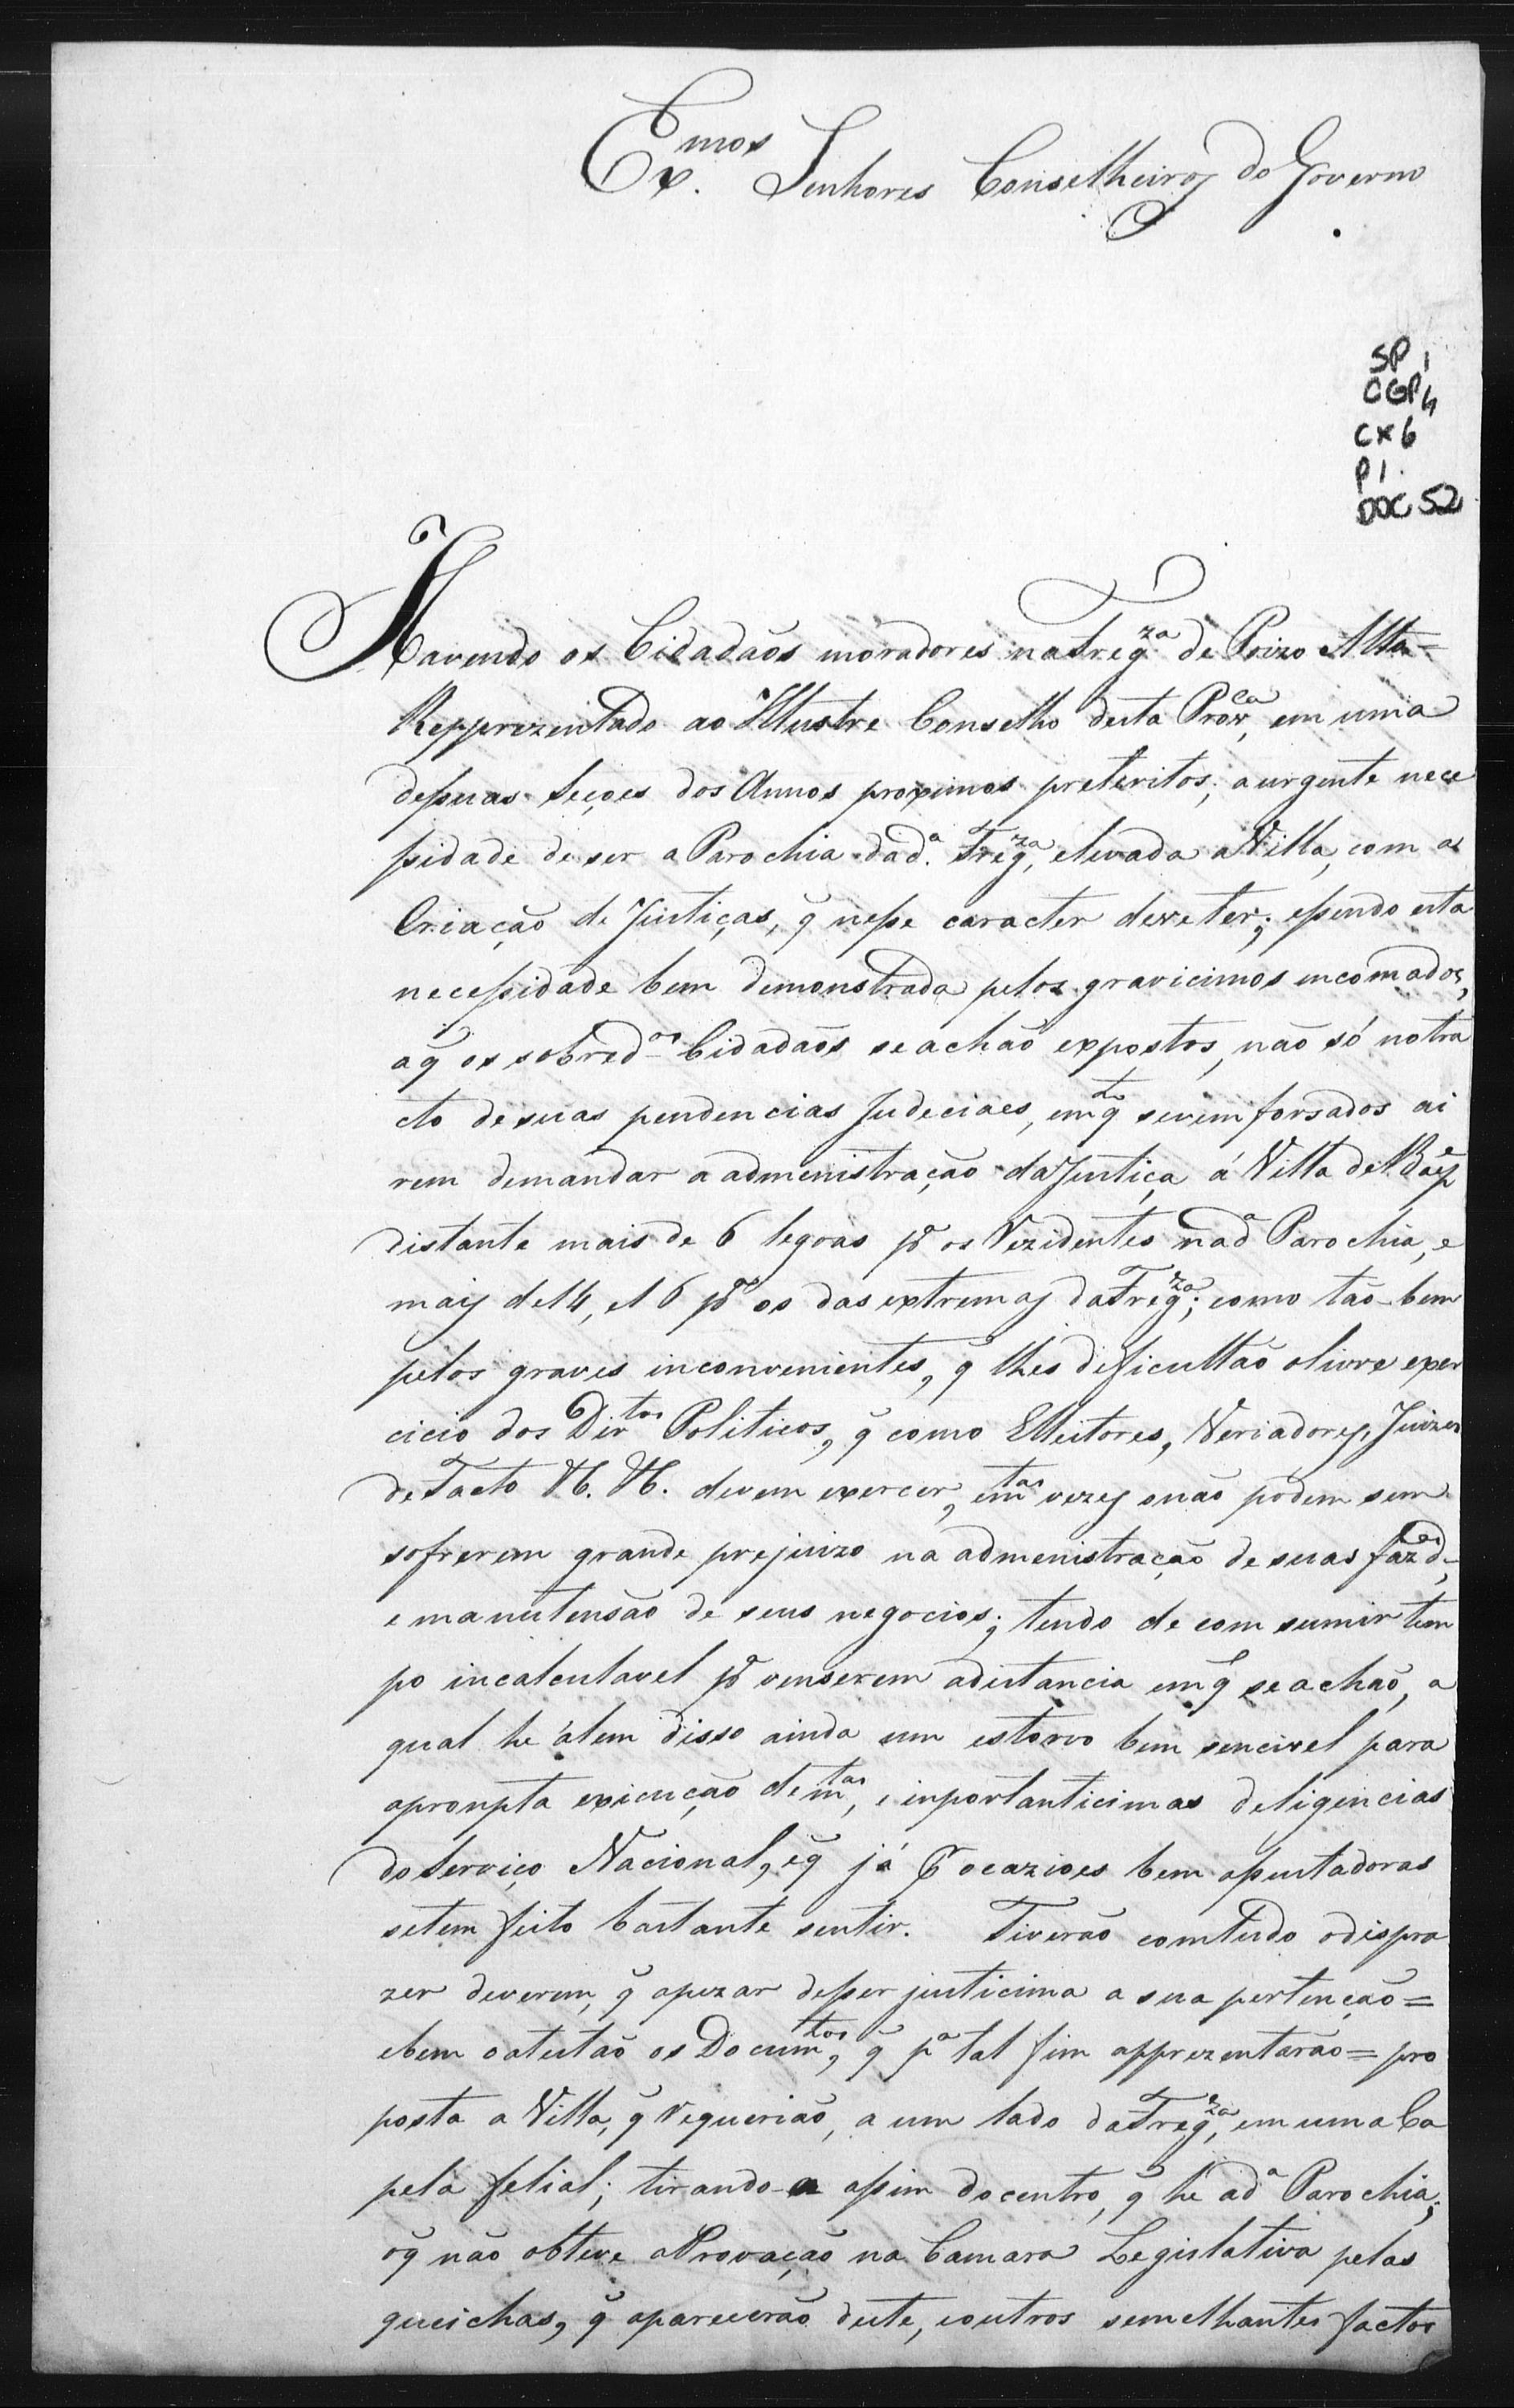 Ex.mos Senhores Conselheiros do Governo
SP 1
CGP4
CX 6
P 1.
DOC 52
Havendo os Cidadãos moradores na Freg.za de Poizo Alto=
Repprezentado ao Illustre Conselho desta Prov.ca, em uma
dessuas Seçoes dos Annos proximos preteritos; a urgente nece
ssidade de ser a Parochia da d.a Freg.za, elevada a Villa, com a
Criação de Justiças, q̃ nesse caracter deve ter; essendo esta
necessidade bem demonstrada pelos gravicimos incomados,
aq̃ os sobred.os Cidadãos se achão expostos, não só no tra
cto de suas pendencias Judeciaes, em q.to se vem forsados ai
rem demandar a admenistração da Justiça á Villa de Baep.e
distante mais de 6 legoas p.a os Rezidentes na d.a Parochia, e
mais de 14, e 16 p.a os das extremas da Freg.za; como tão-bem
pelos graves inconvenientes, q̃ lhes deficultão o livre exer
cicio dos Dir.tos Politicos, q̃ como Elleitores, Veriadores, Juizes
de Facto &. &. devem exercer, e m.tas vezes o não podem sem
sofrerem grande prejuizo na admenistração de suas faz.das,
e manutensão de seus negocios; tendo de com sumir tem
po incalculavel p.a venserem a distancia em q̃ se achão, a
qual he álem disso ainda um estorvo bem sencivel para
a prompta exicução de m.tas, e inportanticimas deligencias
do Serviço Nacional, eq̃ já p.r ocazioes bem apertadoras
se tem feito bastante sentir. Tiverão comtudo o dispra
zer de verem, q̃ apezar desser justicima a sua pertenção=
e bem o atestão os Docum.tos, q̃ p.a tal fim apprezentarão= pro
posta a Villa, q̃ requerião, a um lado da Freg.za, em uma Ca
pela felial; tirando-a assim do centro, q̃ he a d.a Parochia;
oq̃ não obteve aProvação na Camara Legislativa pelas
queichas, q̃ aparecerão deste, e outros semelhantes factos